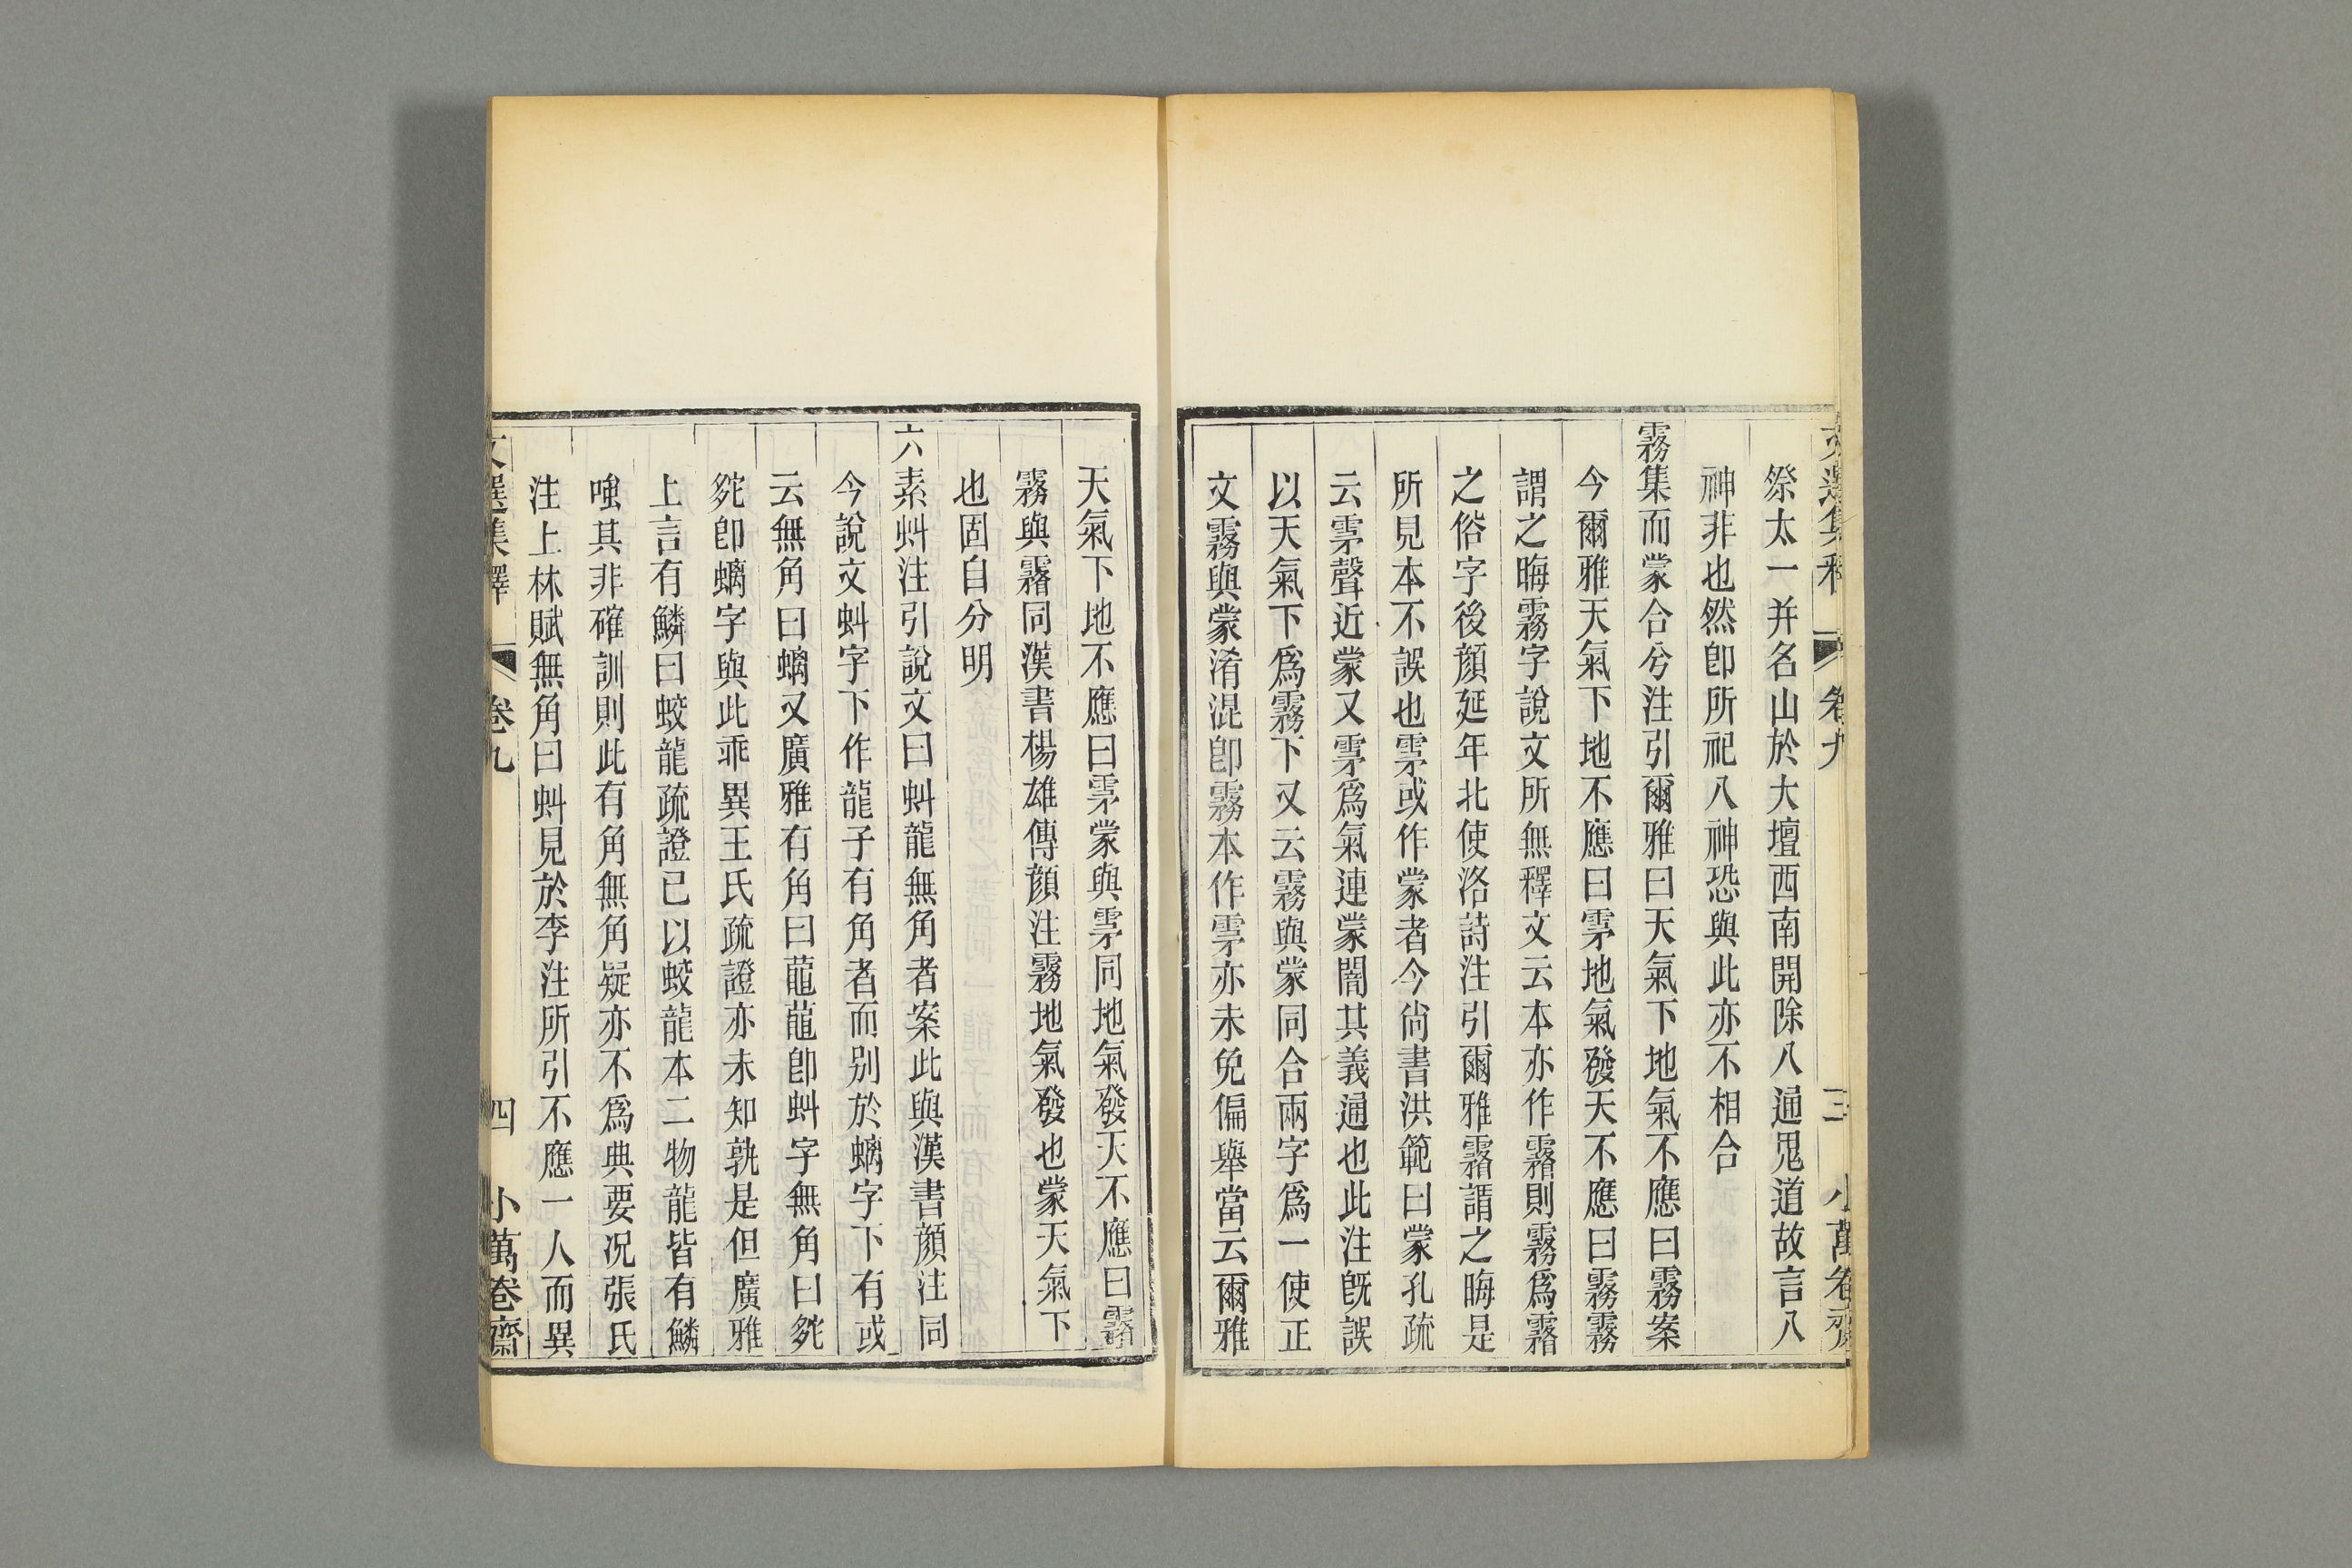 文選集釋 卷九 三 小萬卷齋
祭太一并名山於大壇西南開除八通鬼道故言八
神非也然卽所祀八神恐與此亦不相合
霧集而蒙合兮注引爾雅曰天氣下地氣不應曰霧案
今爾雅天氣下地不應曰雺地氣發天不應曰霧霧
謂之晦霧字說文所無釋文云本亦作霿則霧爲霿
之俗字後顏延年北使洛詩注引爾雅霿謂之晦是
所見本不誤也雺或作蒙者今尙書洪範曰蒙孔疏
云雺聲近蒙又雺爲氣連蒙闇其義通也此注旣誤
以天氣下爲霧下又云霧與蒙同合兩字爲一使正
文霧與蒙淆混卽霧本作雺亦未免偏舉當云爾雅
天氣下地不應曰雺蒙與雺同地氣發天不應曰霿
霧與霿同漢書楊雄傳顏注霧地氣發也蒙天氣下
也固自分明
六素虯注引說文曰虯龍無角者案此與漢書顏注同
今說文虯字下作龍子有角者而別於螭字下有或
云無角曰螭又廣雅有角曰䖺龍䖺龍卽虯字無角曰䖘
䖘卽螭字與此乖異王氏疏證亦未知孰是但廣雅
上言有鱗曰蛟龍疏證已以蛟龍本二物龍皆有鱗
嗤其非確訓則此有角無角疑亦不爲典要況張氏
注上林賦無角曰虯見於李注所引不應一人而異
文選集釋 卷九 四 小萬卷齋